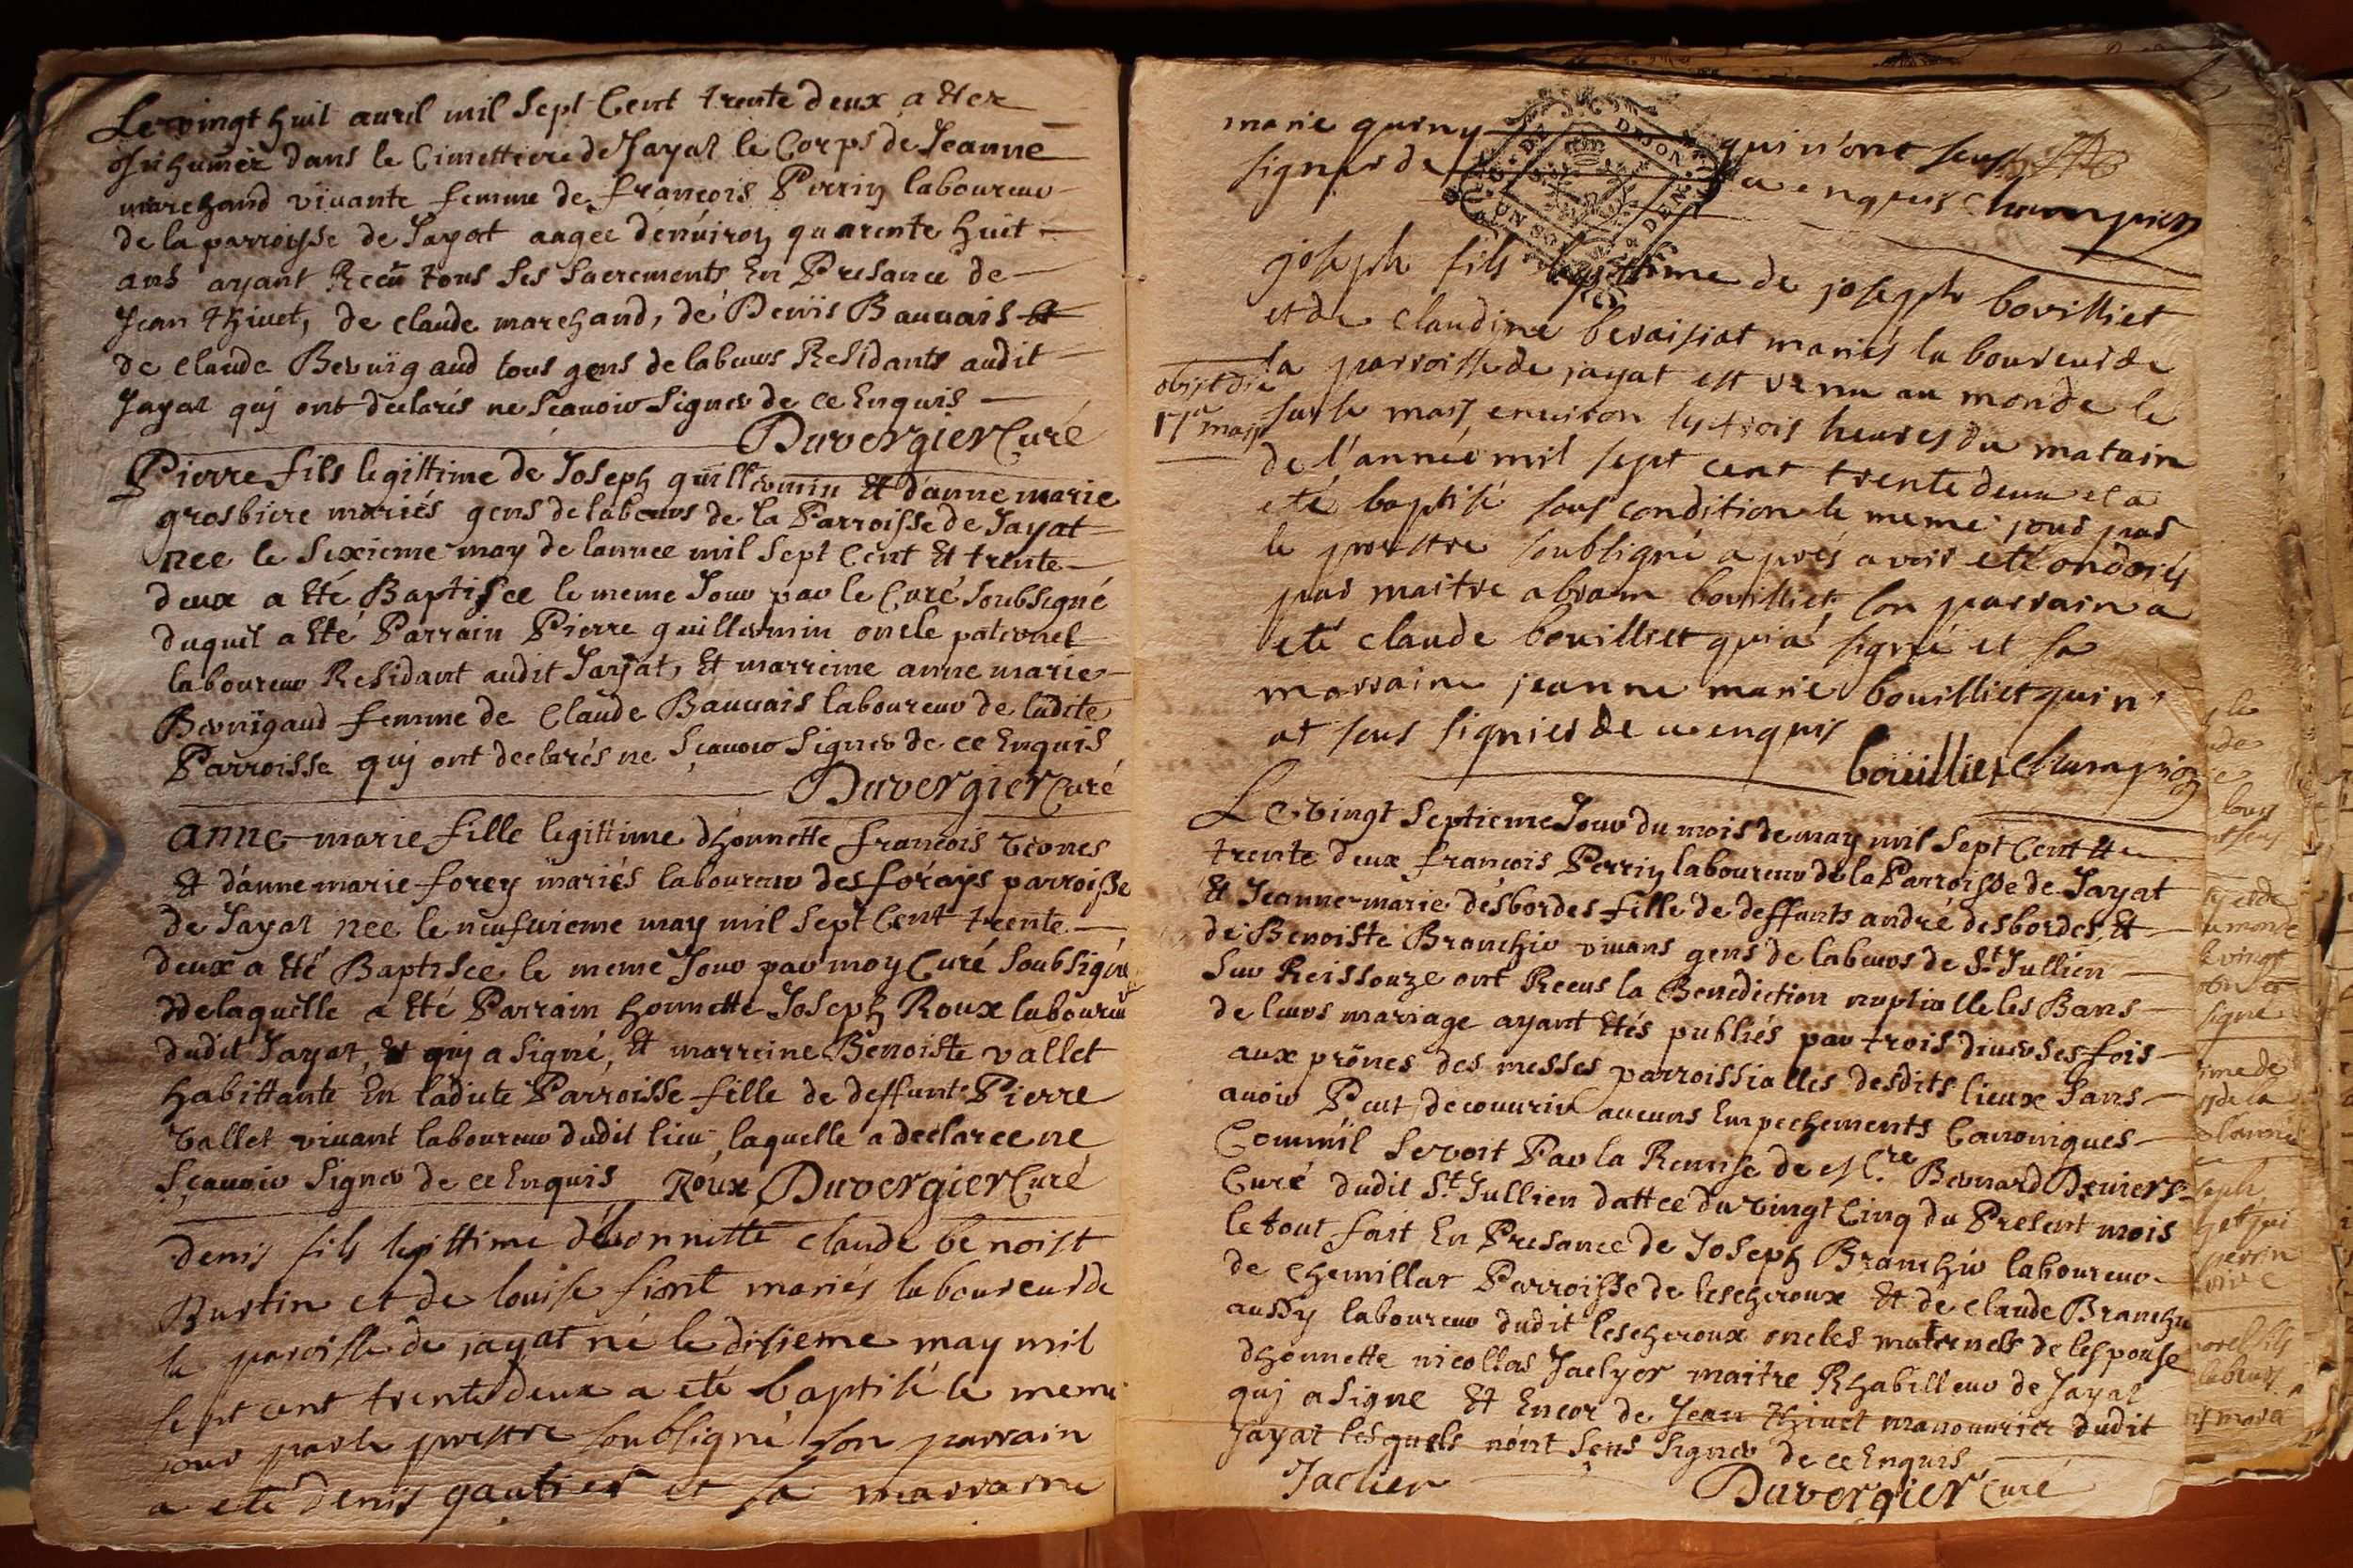 Le vingt huit auril mil Sept Cent trente deux a Eter
Inhumér dans le Cimettiere de Jayat le Corps de Jeanne
marchand viuante femme de françois Perrin laboureur
de la parroisse de Jayat aagee dénuiron quarente huit
ans ayant Reçu tous Ses Sacrements En Presance de
Jean Thiuet, de claude marchand, de Denis Bauuais Et
de claude Beruigaud tous gens de labeurs Residants audit
Jayat qui ont declarés ne Scauoir Signer de ce Enquis
Duvergier Curé
Pierre fils legittime de Joseph guillermin Et d'anne marie
grosbiere mariés gens de labeurs de la Parroisse de Jayat
nee le Sixieme may de lannee mil Sept Cent Et trente
deux a Eté Baptisee le meme Jour par le Curé Soubsigné
duquel a Eté Parrain Pierre guillermin oncle paternel
laboureur Residant audit Jayat, Et marreine anne marie
Beruigaud femme de Claude Bauuais laboureur de ladite
Parroisse qui ont declarés ne Sçauoir Signer de ce Enquis
Duvergier Curé
anne-marie fille legittime dhonnette françois
Et d'anne marie forey mariés laboureur des foráys parroisse
de Jayat nee le neufuieme may mil Sept Cent trente
deux a Eté Baptisee le meme Jour par moy Curé Soubsigné
de laquelle a Eté Parrain honnette Joseph Roux laboureur
dudit Jayat, Et qui a Signé, Et marreine Benoiste vallet
habittante En ladite Parroisse fille de deffunt Pierre
vallet viuant laboureur dudit lieu laquelle a declaree ne
Sçauoir Signer de ce Enquis Roux Duvergier Curé
denis fils legittime dhonnette claude benoist
Burtin et de louise font mariés laboureur de
la paroisse de jayat né le disieme may mil
sept cent trente deux a eté baptisé le meme
jour par le prestre soubsigné son parrain
a eté denis gautier et sa marraine
marie guiny qui n'ont seus
signer de ce enquis Champion
joseph fils legittime de joseph bovilliet
et de claudine beraisiat mariés laboureur de
la parroisse de jayat est venu au monde le
obiit die
17a maij
sur le mars environ les trois heures du matain
de l'année mil sept cent trente deux et a
eté baptisé sous condition le meme jour par
le prestre soubsigné aprés avoir eté ondoié
par maitre abram bovilliet son parrain a
eté claude bouilliet qui a signé et sa
marraine jeanne marie bouilliet qui n'
at seus signier de ce enquis
boüilliet Champion
Le vingt Septieme Jour du mois de may mil Sept Cent Et
trente deux françois Perrin laboureur de la Parroisse de Jayat
Et Jeanne-marie désbordes fille de deffunts andré desbordes, Et
de Benoiste Branchir viuans gens de labeurs de St Jullien
Sur Reissouze ont Receus la Benediction nuptialle les Bans
de leurs mariage ayant Etés publiés par trois diuerses fois
aux prônes des messes parroissialles desdits lieux Sans
auoir Peut decouurir aucuns Empechements Canoniques
Comm'il Seroit Par la Remise de Bernard
Curé dudit St Jullien dattee du vingt Cinq du Present mois
le tout fait En Presance de Joseph Branchir laboureur
de chemillat Parroisse de lescheroux Et de claude Branchir
aussy laboureur dudit lescheroux oncles maternels de lespouse
dhonnette nicollas Jaclyer maitre Rhabilleur de Jayat
qui a Signe Et Encor de Jean Thiuet manouurier dudit
Jayat lesquels n'ont Sçus Signer de ce Enquis
Jaclier Duvergier Curé